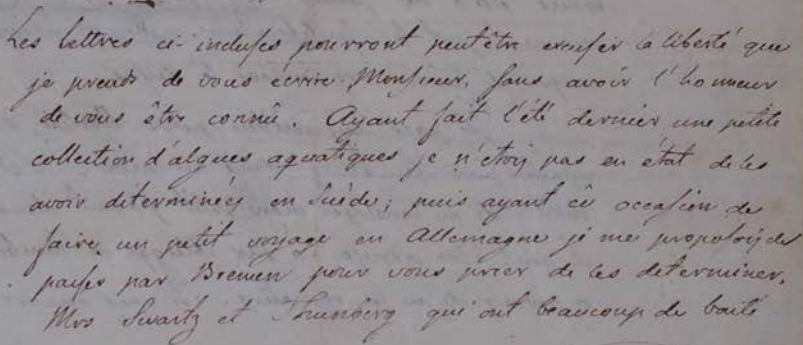 Les lettres ci-incluses pourront peutêtre excuser la liberté que
je prends de vous ecrire, Monsieur, sans avoir l'honneur
de vous être connûe. Ayant fait l'été dernier une petite
collection d'algues aquatiques je n'étois pas en état de les
avoir determinées en Suède; puis ayant eû occasion de
faire un petit voyage en Allemagne je me proposois de
passer par Bremen pour vous prier de les determiner.
Mrs Swartz et Thunberg qui ont beaucoup de bonté